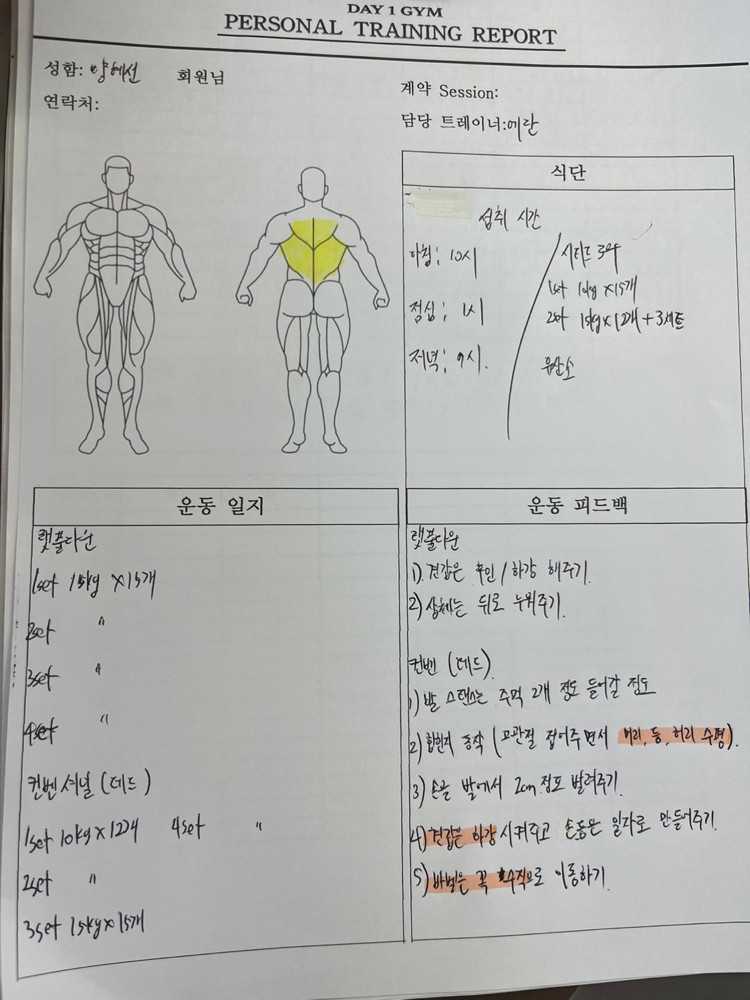 DAY 1 GYM
PERSONAL TRAINING REPORT
성함: 양혜선 회원님
연락처:
계약 Session:
담당 트레이너:에란
식단
섭취 시간
아침: 10시
점심: 1시
저녁: 9시.
시티드 로우
1set 10kg x15개
2set 15kg x12개 + 3세트
유산소
운동 일지
랫풀다운
1set 15kg x15개
2set "
3set "
4set "
컨벤셔널 (데드)
1set 10kg x12개 4set "
2set "
3set 15kg x15개
운동 피드백
랫풀다운
1) 견갑은 후인 / 하강 해주기.
2) 상체는 뒤로 누워주기.
컨벤 (데드).
1) 발 스탠스는 주먹 2개 정도 들어갈 정도
2) 힙힌지 동작 (고관절 접어주면서 머리, 등, 허리 수평).
3) 손을 발에서 2cm 정도 벌려주기.
4) 견갑은 하강 시켜주고 손등은 일자로 만들어주기.
5) 바벨은 꼭 수직으로 이동하기.